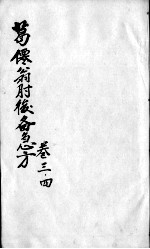 葛僊翁肘後备急方
卷三·四